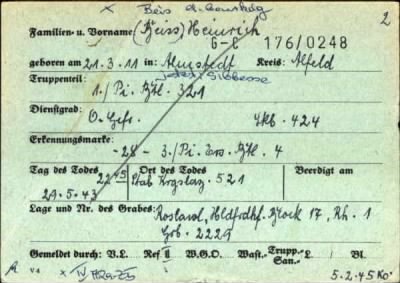 x Beis d.
2
Familien- u. Vorname (Beiss) Heinrich
G-C 176/0248
geboren am 21.3.11 in: Almstedt Kreis: Alfeld
jetzt: Sibbesse
Truppenteil: 1./Pi. Btl. 321
Dienstgrad: O. Gefr. Vkb. 424
Erkennungsmarke: -28- 3./Pi. Ers. Btl. 4
Tag des Todes 22 45 Ort des Todes Beerdigt am
29.5.43 Stab Krgslaz. 521
Lage und Nr. des Grabes: Roslawl, Hldfrdhf. Block 17, Rh. 1
Grb. 2229
Gemeldet durch: V.L. Ref II W.G.O. Wast. Trupp. San. L. / Bl.
x IV
5.2.45 Ko